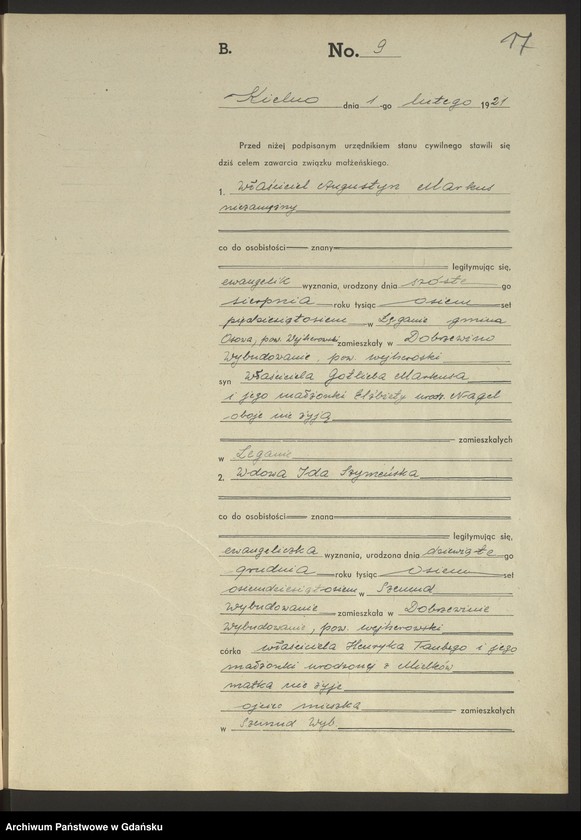 B. No. 9 17
Kielno dnia 1 -go lutego 1921
Przed niżej podpisanym urzędnikiem stanu cywilnego stawili się
dziś celem zawarcia związku małżeńskiego.
1. Właściciel Augustyn Markus
niezamężny
co do osobistości znany
legitymując się,
ewangelik wyznania, urodzony dnia szóste go
sierpnia roku tysiąc osiem set
pięćdziesiątosiem w Łęganie gmina
Osowa, pow. Wejherowski zamieszkały w Dobrzewino
Wybudowanie, pow. wejherowski
syn Właściciela Gotlieba Markusa
i jego małżonki Elżbiety urodz. Nagel
oboje nie żyją
zamieszkałych
w Łęganie
2. Wdowa Ida Szymeńska
co do osobistości znana
legitymując się,
ewangeliczka wyznania, urodzona dnia dziewiąte go
grudnia roku tysiąc osiem set
osiemdziesiątosiem w Szemud
Wybudowanie zamieszkała w Dobrzewinie
Wybudowanie, pow. wejherowski
córka właściciela Henryka Taubego i jego
małżonki urodzonej z Mielków
matka nie żyje
ojciec mieszka zamieszkałych
w Szemud Wyb.
Archiwum Państwowe w Gdańsku